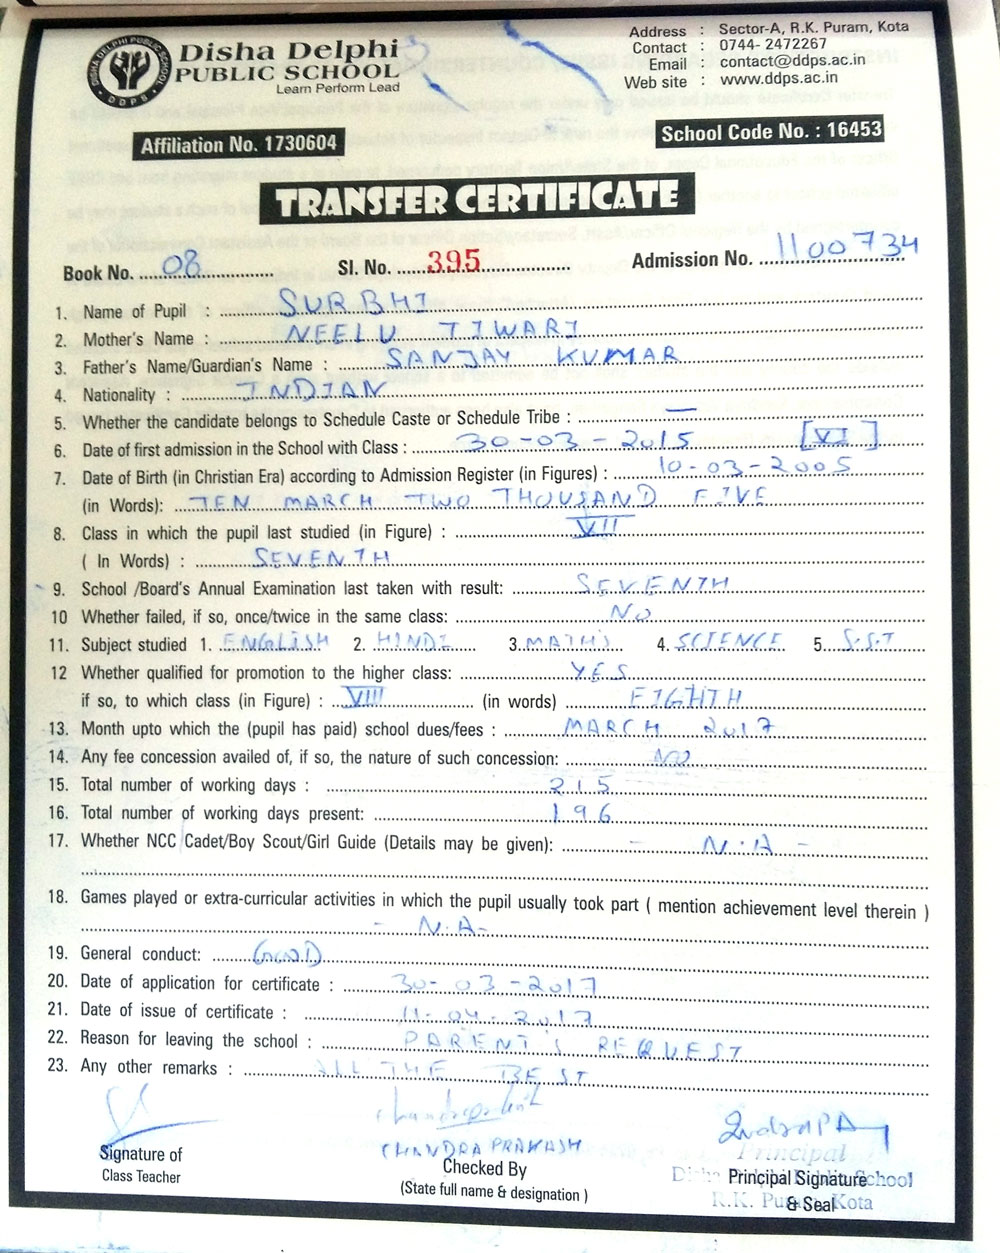 DISHA DELPHI PUBLIC SCHOOL
DDPS
Disha Delphi
PUBLIC SCHOOL
Learn Perform Lead
Address : Sector-A, R.K. Puram, Kota
Contact : 0744- 2472267
Email : contact@ddps.ac.in
Web site : www.ddps.ac.in
Affiliation No. 1730604
School Code No. : 16453
TRANSFER CERTIFICATE
Book No. 08 Sl. No. 395 Admission No. 1100734
1. Name of Pupil : SURBHI
2. Mother's Name : NEELU TIWARI
3. Father's Name/Guardian's Name : SANJAY KUMAR
4. Nationality : INDIAN
5. Whether the candidate belongs to Schedule Caste or Schedule Tribe : —
6. Date of first admission in the School with Class : 30-03-2015 [VI]
7. Date of Birth (in Christian Era) according to Admission Register (in Figures) : 10-03-2005
(in Words): TEN MARCH TWO THOUSAND FIVE
8. Class in which the pupil last studied (in Figure) : VII
( In Words) : SEVENTH
9. School /Board's Annual Examination last taken with result: SEVENTH
10 Whether failed, if so, once/twice in the same class: NO
11. Subject studied 1. ENGLISH 2. HINDI 3. MATHS 4. SCIENCE 5. S.S.T
12 Whether qualified for promotion to the higher class: YES
if so, to which class (in Figure) : VIII (in words) EIGHTH
13. Month upto which the (pupil has paid) school dues/fees : MARCH 2017
14. Any fee concession availed of, if so, the nature of such concession: NO
15. Total number of working days : 215
16. Total number of working days present: 196
17. Whether NCC Cadet/Boy Scout/Girl Guide (Details may be given): - N.A -
18. Games played or extra-curricular activities in which the pupil usually took part ( mention achievement level therein )
- N.A-
19. General conduct: GOOD
20. Date of application for certificate : 30-03-2017
21. Date of issue of certificate : 11-04-2017
22. Reason for leaving the school : PARENT'S REQUEST
23. Any other remarks : ALL THE BEST
CHANDRA PRAKASH
Signature of
Class Teacher
Checked By
(State full name & designation )
Principal
Principal Signature
& Seal
School
R.K. Puram, Kota